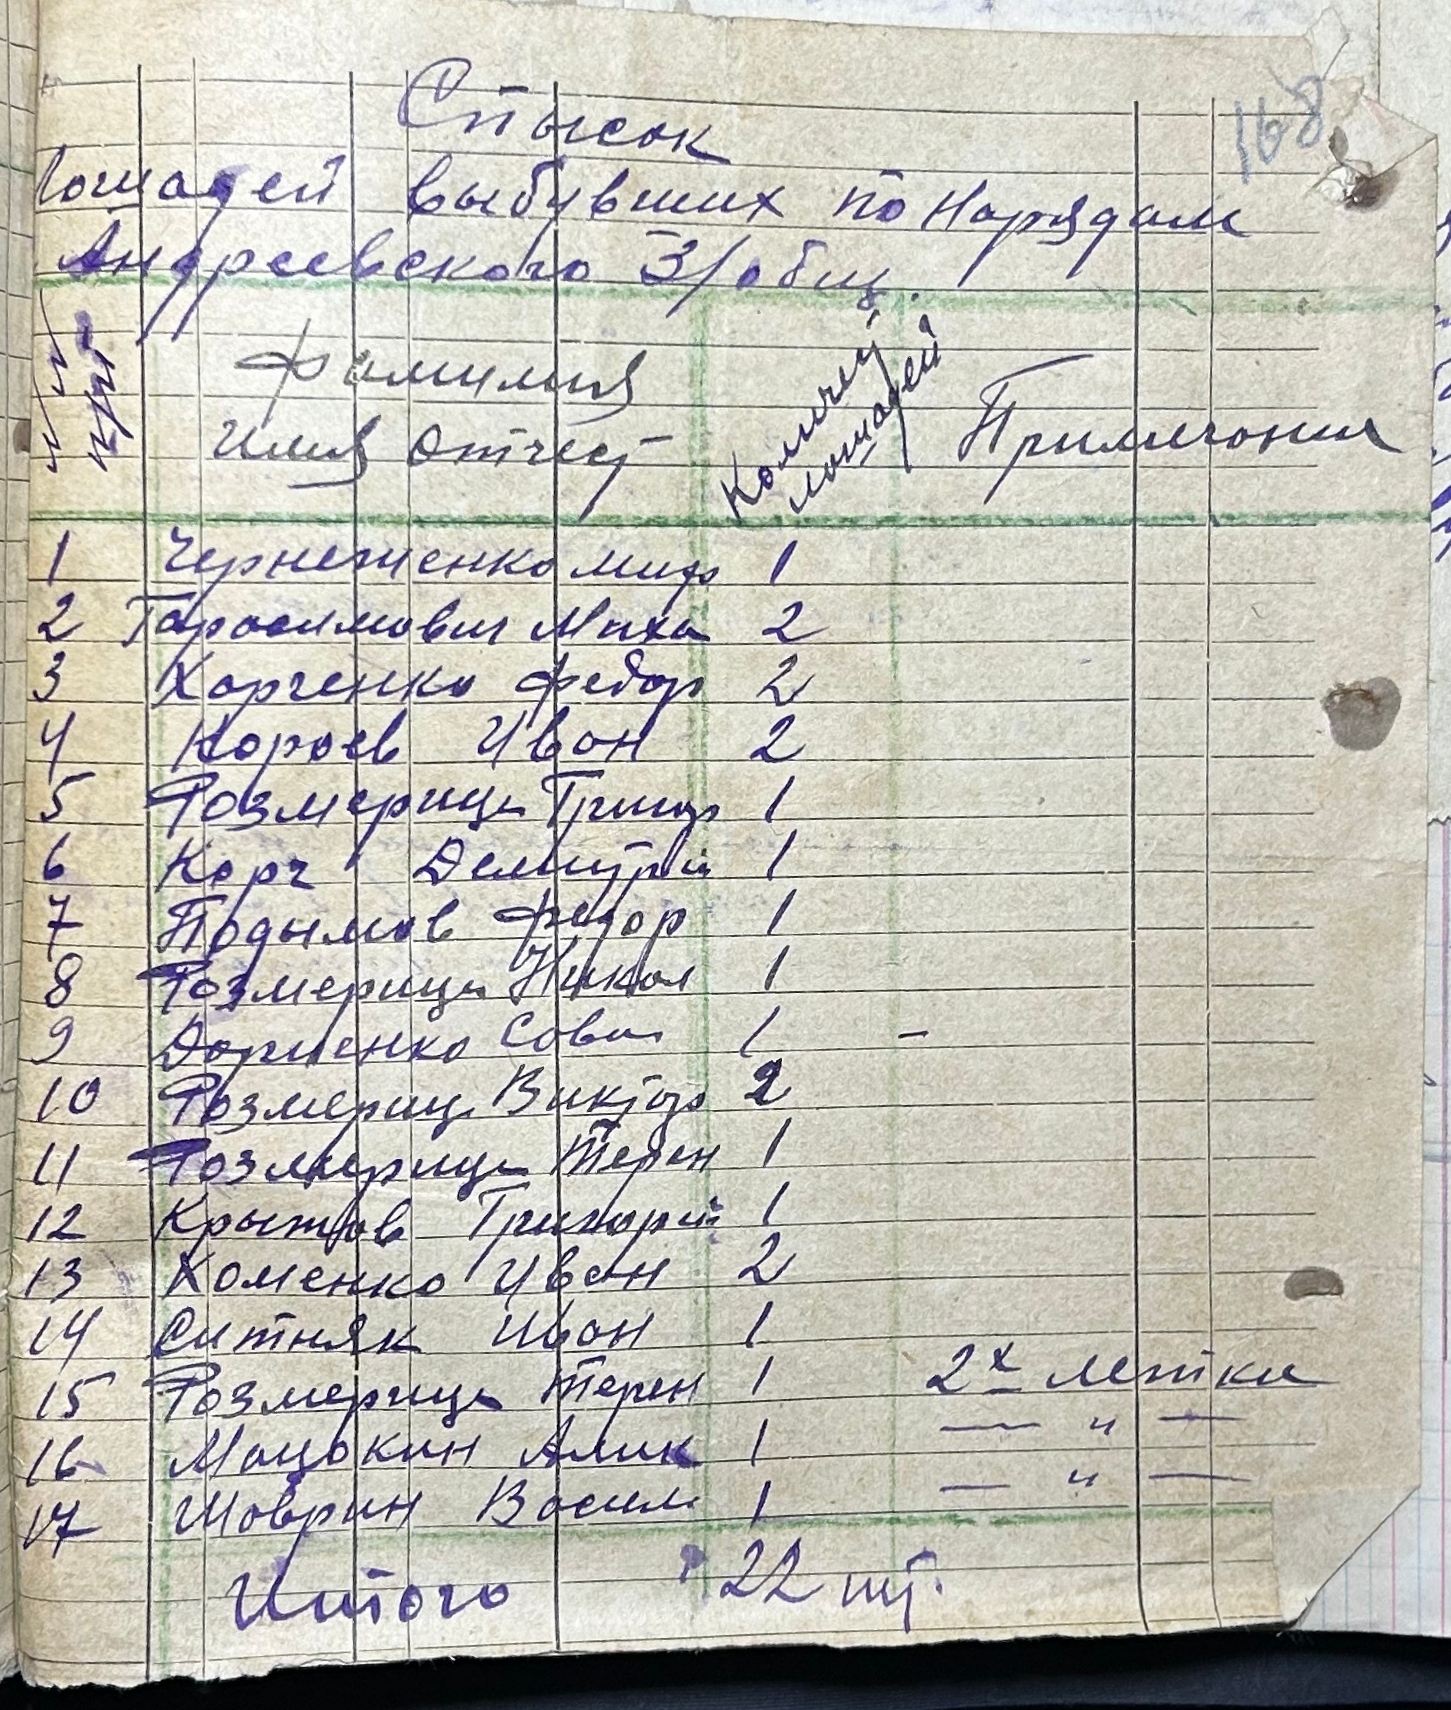 168
Спысок
Лошадей выбувших по Нарядам
Андреевского З/общ.
№№ п/п
Фамилия
Имя Отчест
Количей
лошадей
Примичания
1 Чернеженко Миф 1
2 Тарасимович Миха 2
3 Харченко Федор 2
4 Кораев Иван 2
5 Розмерица Григор 1
6 Корч Демитрий 1
7 Подымов Федор 1
8 Розмерица Никол 1
9 Дорженко Сова 1 -
10 Розмериц Виктор 2
11 Розмерица Терен 1
12 Крыжов Григорий 1
13 Хоменко Иван 2
14 Ситняк Иван 1
15 Розмерица Терен 1 2х летки
16 Мацокин Алик 1 — " —
17 Шоврин Васил 1 — " —
Итого 22 шт.